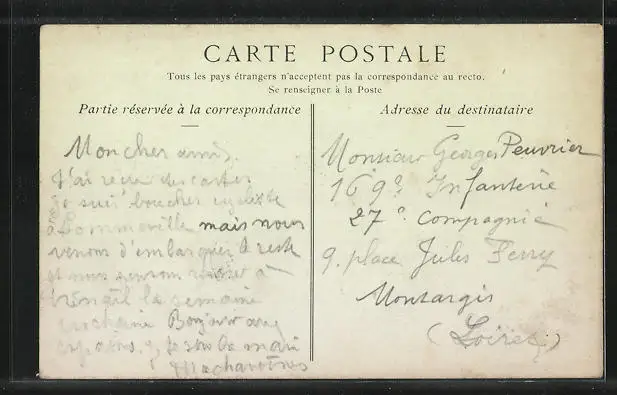 CARTE POSTALE
Tous les pays étrangers n'acceptent pas la correspondance au recto.
Se renseigner à la Poste
Partie réservée à la correspondance
Mon cher ami,
J'ai reçu des cartes
je suis boucher cycliste
à mais nous
venons d'embarquer le reste
et nous à
la semaine
prochaine Bonjour aux
Adresse du destinataire
Monsieur Georges Peuvrier
169e Infanterie
27e Compagnie
9. place Jules Ferry
Montargis
(Loiret)